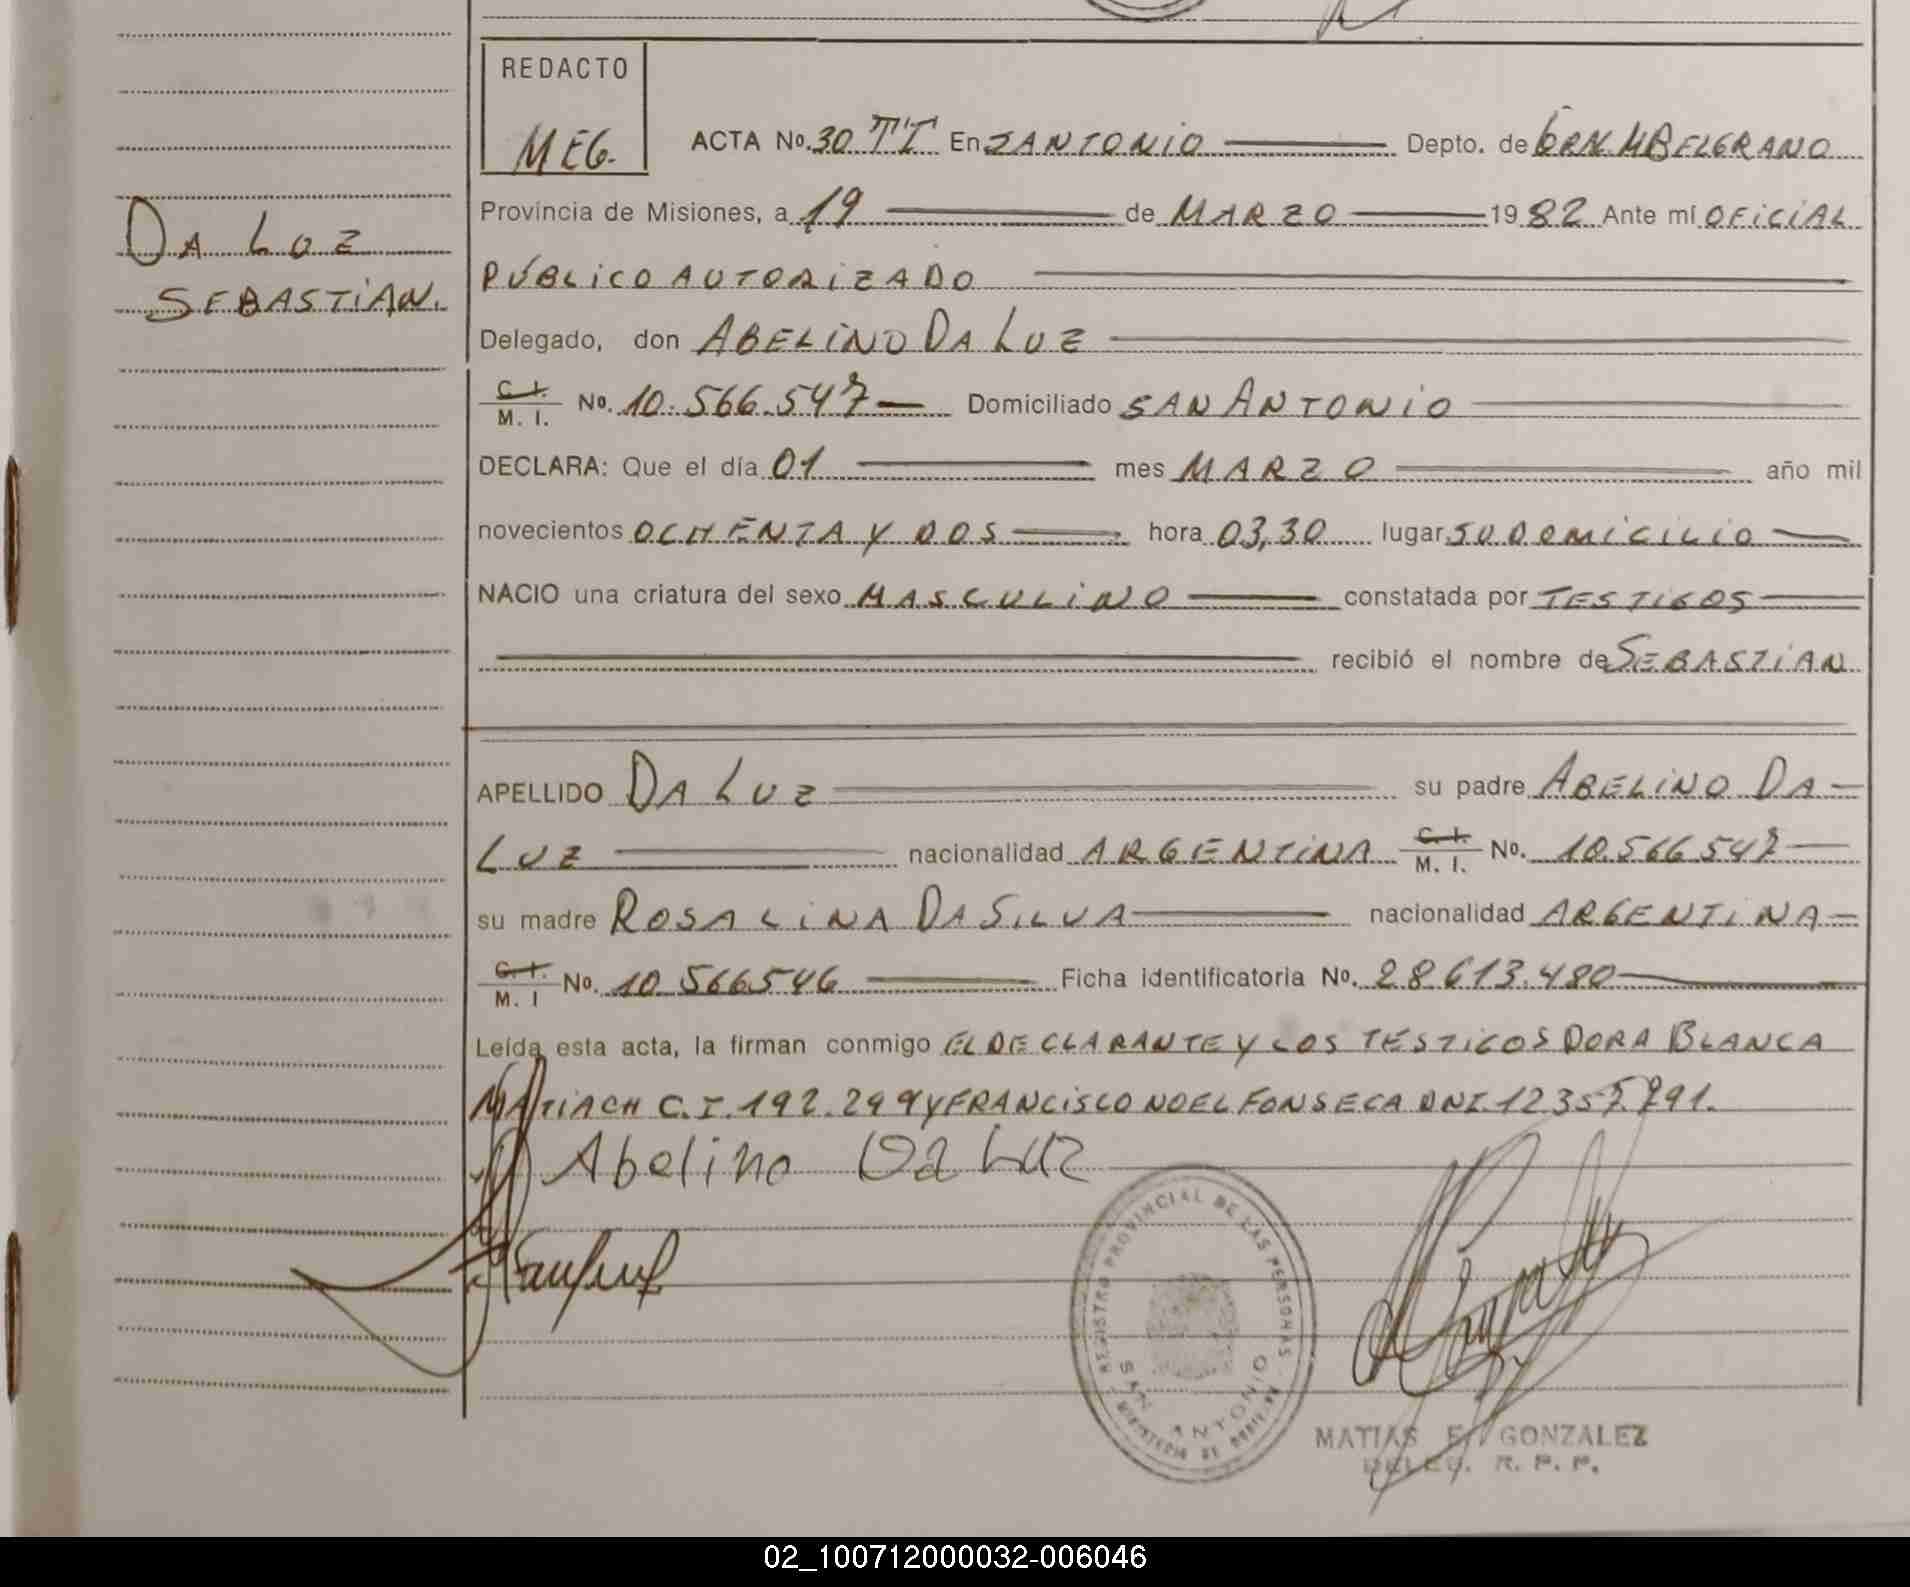 REDACTO
MEG.
ACTA No. 30 TI En S ANTONIO Depto. de GRN. M BELGRANO
Provincia de Misiones, a 19 de MARZO 1982 Ante mí OFICIAL
PÚBLICO AUTORIZADO
DA LUZ
SEBASTIAN.
Delegado, don ABELINO DA LUZ
C. I. / M. I. No. 10.566.547 Domiciliado SAN ANTONIO
DECLARA: Que el día 01 mes MARZO año mil
novecientos OCHENTA Y DOS hora 03,30 lugar SU DOMICILIO
NACIO una criatura del sexo MASCULINO constatada por TESTIGOS
recibió el nombre de SEBASTIAN
APELLIDO DA LUZ su padre ABELINO DA
LUZ nacionalidad ARGENTINA C. I. / M. I. No. 10.566547
su madre ROSALINA DA SILVA nacionalidad ARGENTINA
C. I. / M. I No. 10.566546 Ficha identificatoria No. 28.613.480
Leída esta acta, la firman conmigo EL DECLARANTE Y LOS TESTIGOS DORA BLANCA
MATIACH C.I. 192.299 Y FRANCISCO NOEL FONSECA DNI 12357.791.
Abelino Da Luz
REGISTRO PROVINCIAL DE LAS PERSONAS
SAN ANTONIO
MINISTERIO DE
MATIAS E. GONZALEZ
DELEG. R. P. P.
02_100712000032-006046